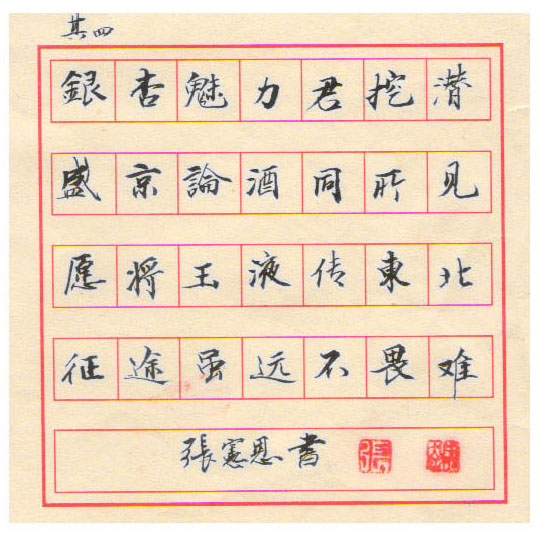 其四
銀杏魅力君挖潜
盛京論酒同所见
愿将玉液传東北
征途虽远不畏难
張憲恩書
張